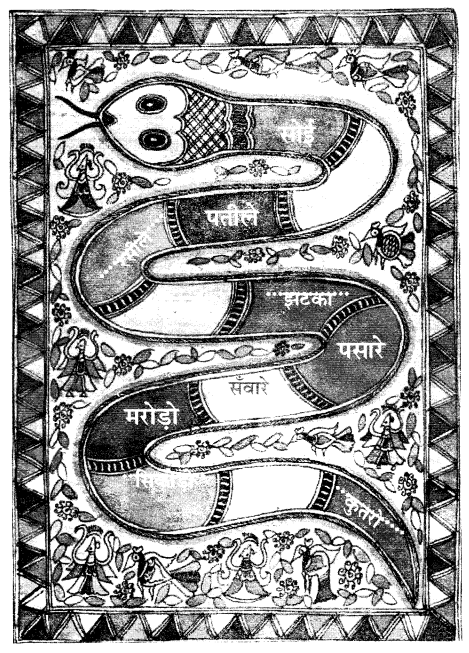 साई
पतीले
रसीले
झटका
पसारे
सँवारे
मरोड़ो
सिकोड़ो
कुतेरो